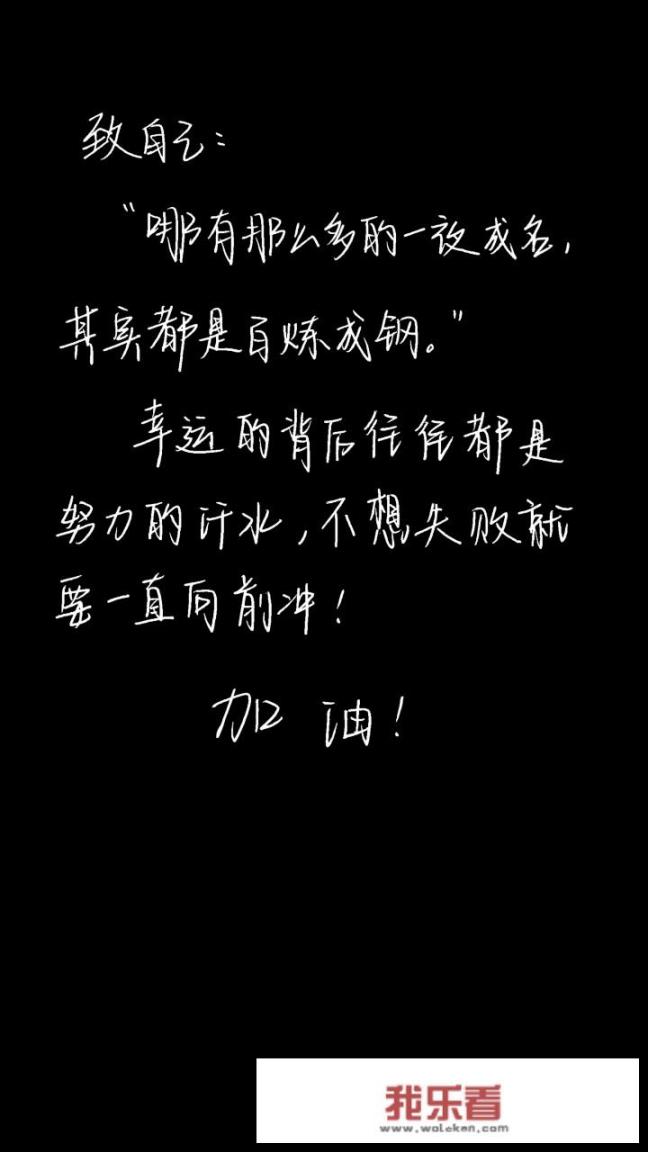 致自己：
“哪有那么多的一夜成名，
其实都是百炼成钢。”
幸运的背后往往都是
努力的汗水，不想失败就
要一直向前冲！
加油！
我乐看
www.woleken.com